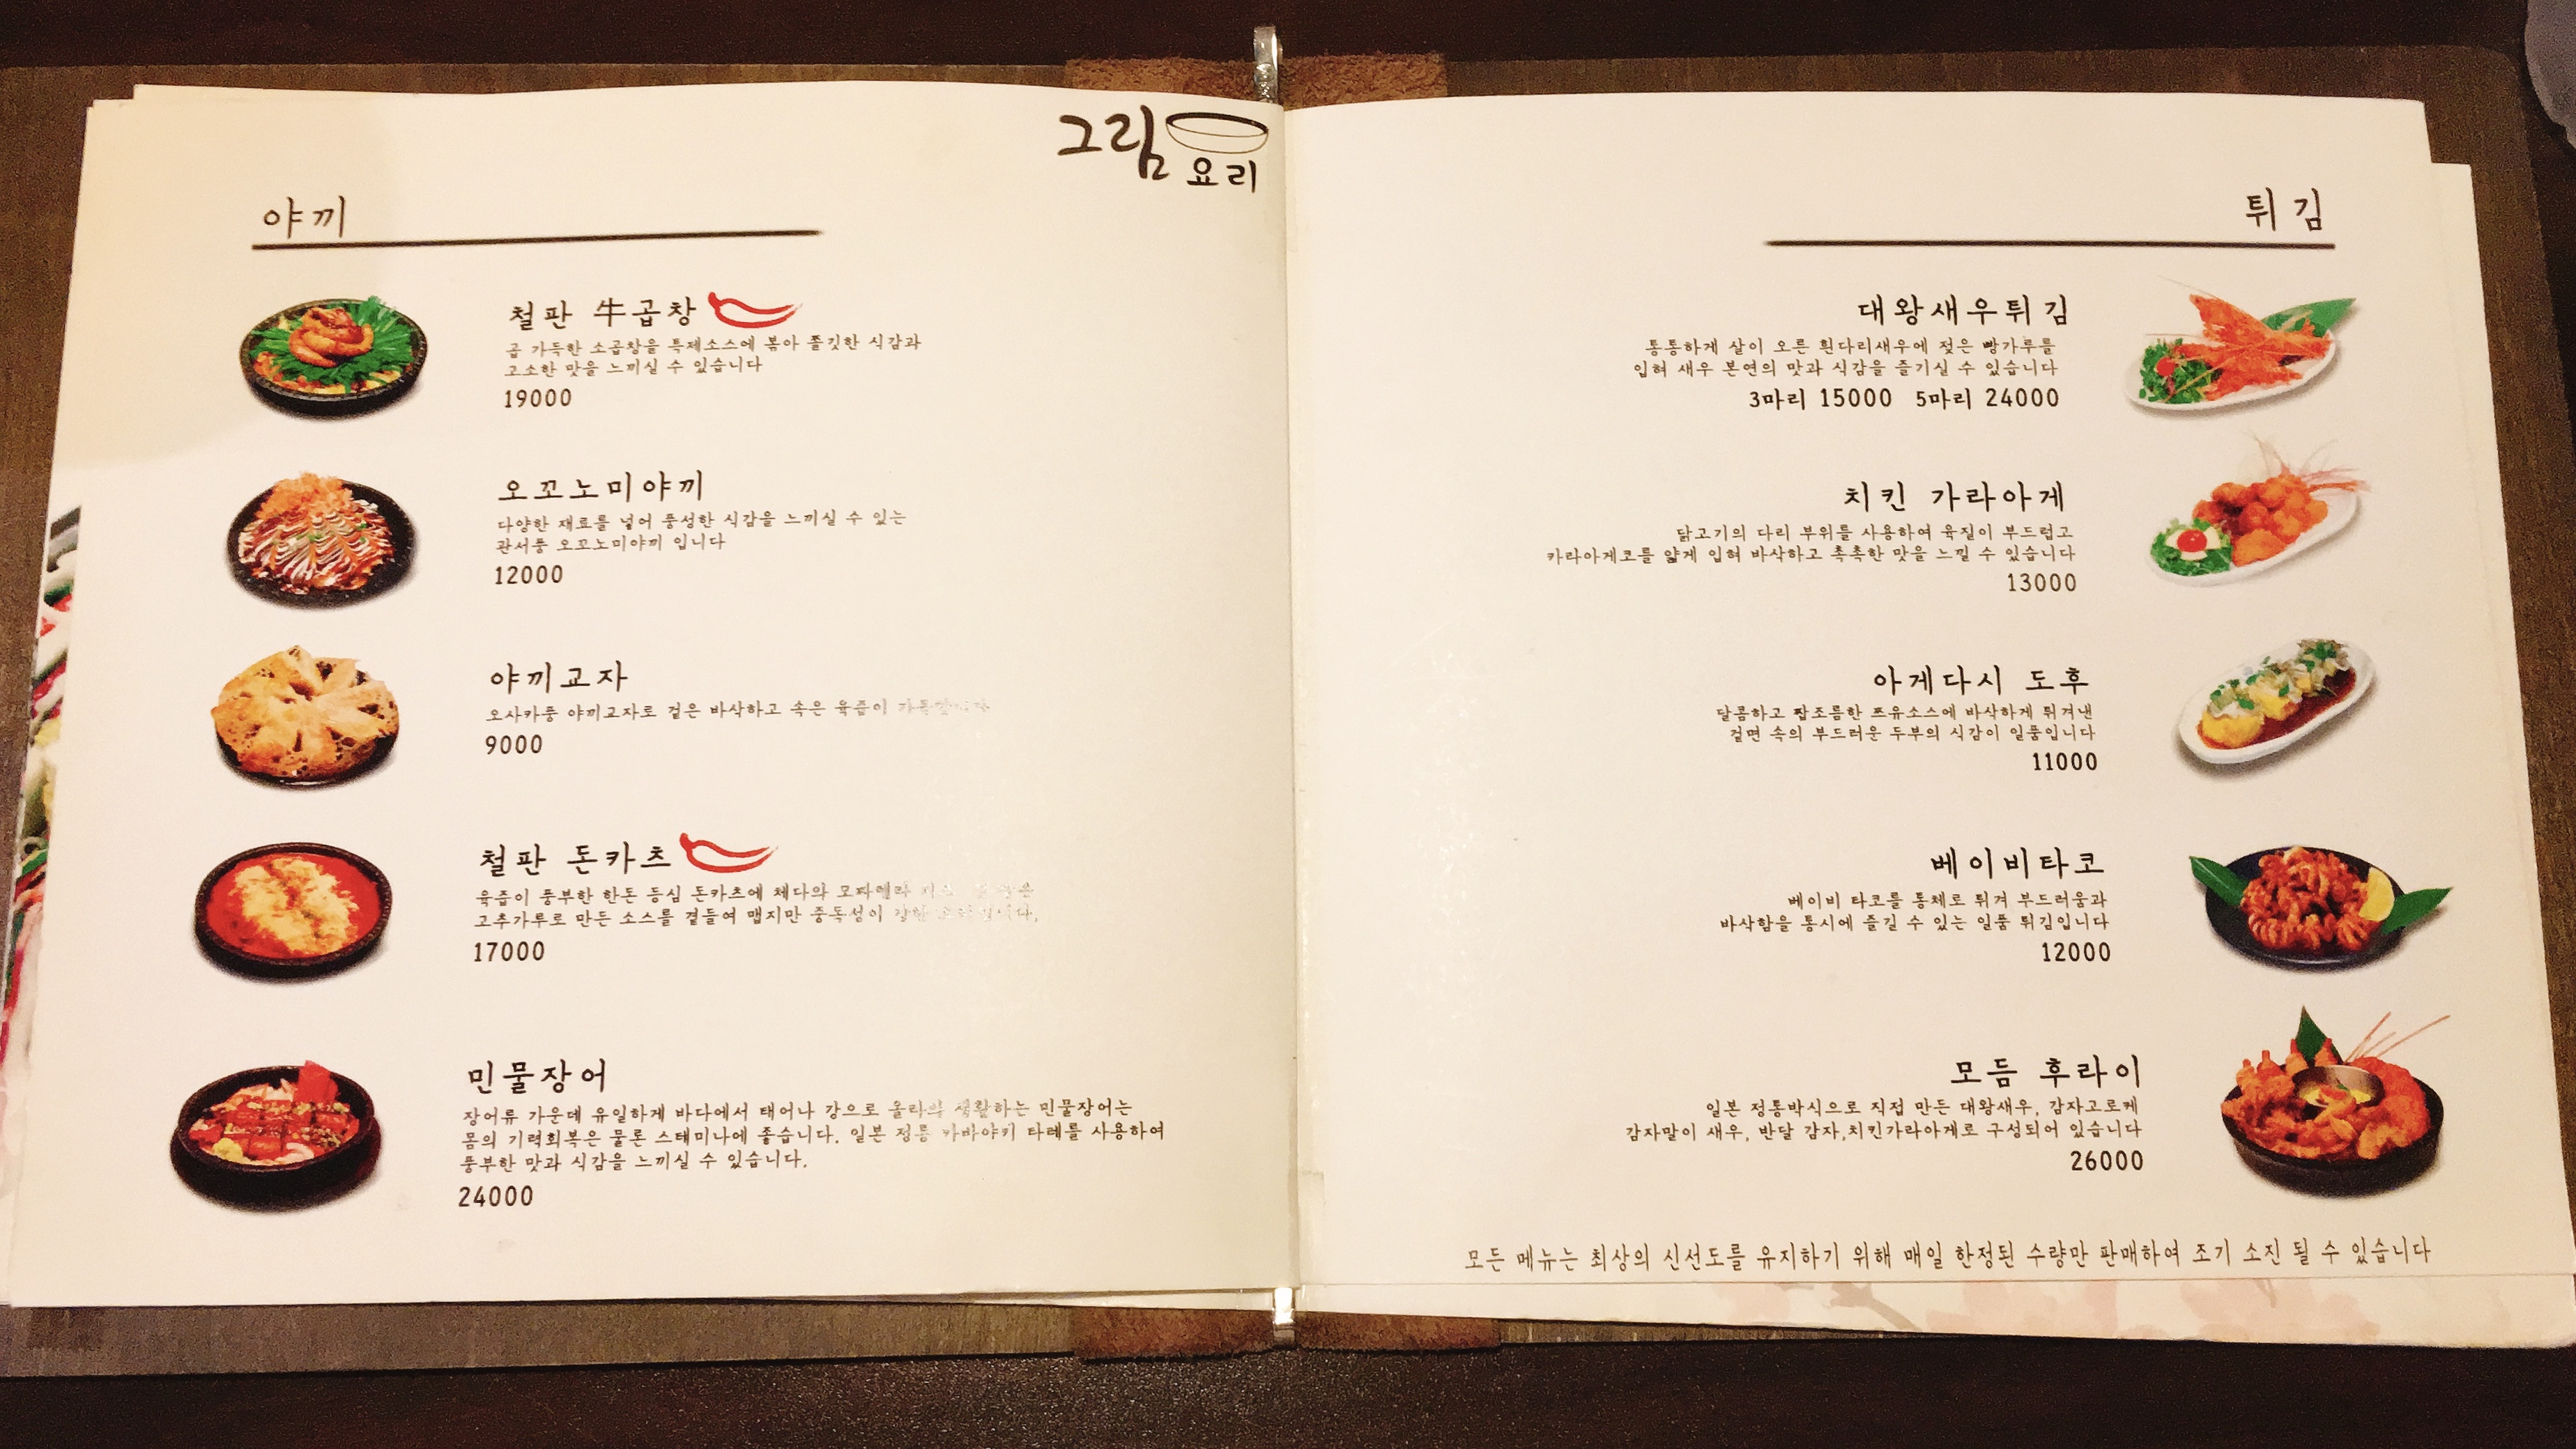 그림
요리
야끼
철판 牛곱창
곱 가득한 소곱창을 특제소스에 볶아 쫄깃한 식감과
고소한 맛을 느끼실 수 있습니다
19000
오꼬노미야끼
다양한 재료를 넣어 풍성한 식감을 느끼실 수 있는
관서풍 오꼬노미야끼 입니다
12000
야끼교자
오사카풍 야끼교자로 겉은 바삭하고 속은 육즙이
9000
철판 돈카츠
육즙이 풍부한 한돈 등심 돈카츠에 체다와 모짜렐라
고추가루로 만든 소스를 곁들여 맵지만 중독성이 강한
17000
민물장어
장어류 가운데 유일하게 바다에서 태어나 강으로 올라와 생활하는 민물장어는
몸의 기력회복은 물론 스테미나에 좋습니다. 일본 정통 카바야키 타레를 사용하여
풍부한 맛과 식감을 느끼실 수 있습니다.
24000
튀김
대왕새우튀김
통통하게 살이 오른 흰다리새우에 젖은 빵가루를
입혀 새우 본연의 맛과 식감을 즐기실 수 있습니다
3마리 15000 5마리 24000
치킨 가라아게
닭고기의 다리 부위를 사용하여 육질이 부드럽고
카라아게코를 얇게 입혀 바삭하고 촉촉한 맛을 느낄 수 있습니다
13000
아게다시 도후
달콤하고 짭조름한 쯔유소스에 바삭하게 튀겨낸
겉면 속의 부드러운 두부의 식감이 일품입니다
11000
베이비타코
베이비 타코를 통체로 튀겨 부드러움과
바삭함을 통시에 즐길 수 있는 일품 튀김입니다
12000
모듬 후라이
일본 정통방식으로 직접 만든 대왕새우, 감자고로케
감자말이 새우, 반달 감자,치킨가라아게로 구성되어 있습니다
26000
모든 메뉴는 최상의 신선도를 유지하기 위해 매일 한정된 수량만 판매하여 조기 소진 될 수 있습니다